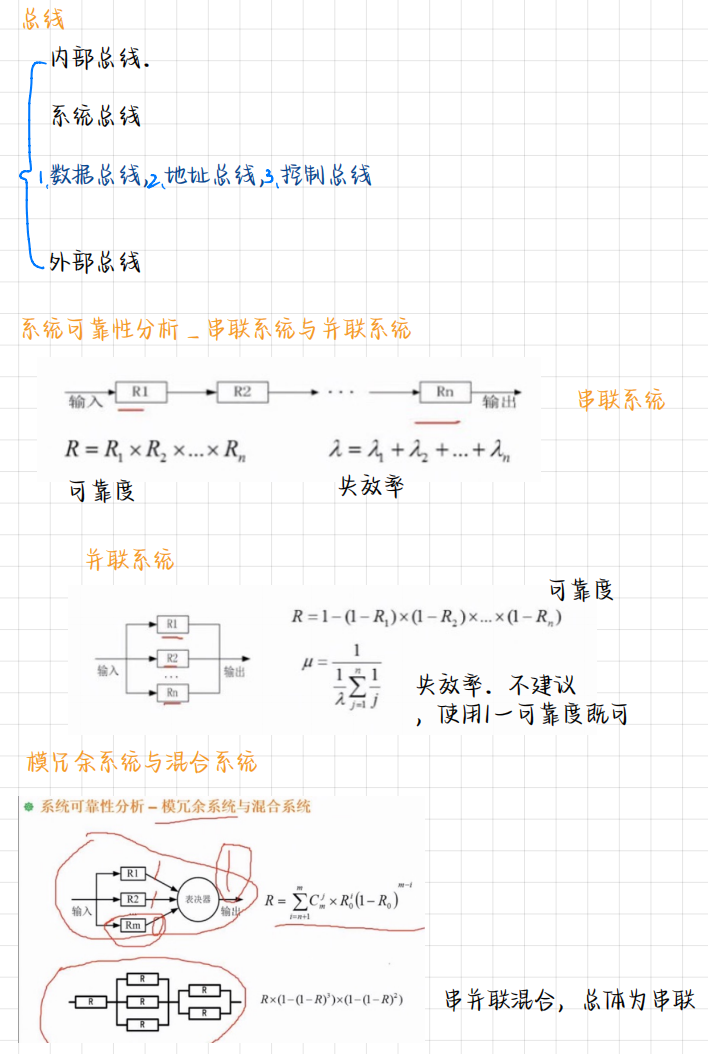 总线
内部总线.
系统总线
1、数据总线,2、地址总线,3、控制总线
外部总线
系统可靠性分析 - 串联系统与并联系统
输入 R1 R2 ··· Rn 输出
串联系统
R = R₁ × R₂ × ... × Rₙ
λ = λ₁ + λ₂ + ... + λₙ
可靠度
失效率
并联系统
可靠度
输入 R1 R2 ... Rn 输出
R = 1 - (1 - R₁) × (1 - R₂) × ... × (1 - Rₙ)
μ = 1 / ( (1/λ) ∑_{j=1}^{n} (1/j) )
失效率. 不建议
, 使用1一可靠度既可
模冗余系统与混合系统
系统可靠性分析 – 模冗余系统与混合系统
输入 R1 R2 Rm 表决器 输出
R = ∑_{i=n+1}^{m} C_m^j × R_0^i (1 - R_0)^{m-i}
R R R R R R
R×(1-(1-R)³)×(1-(1-R)²)
串并联混合, 总体为串联